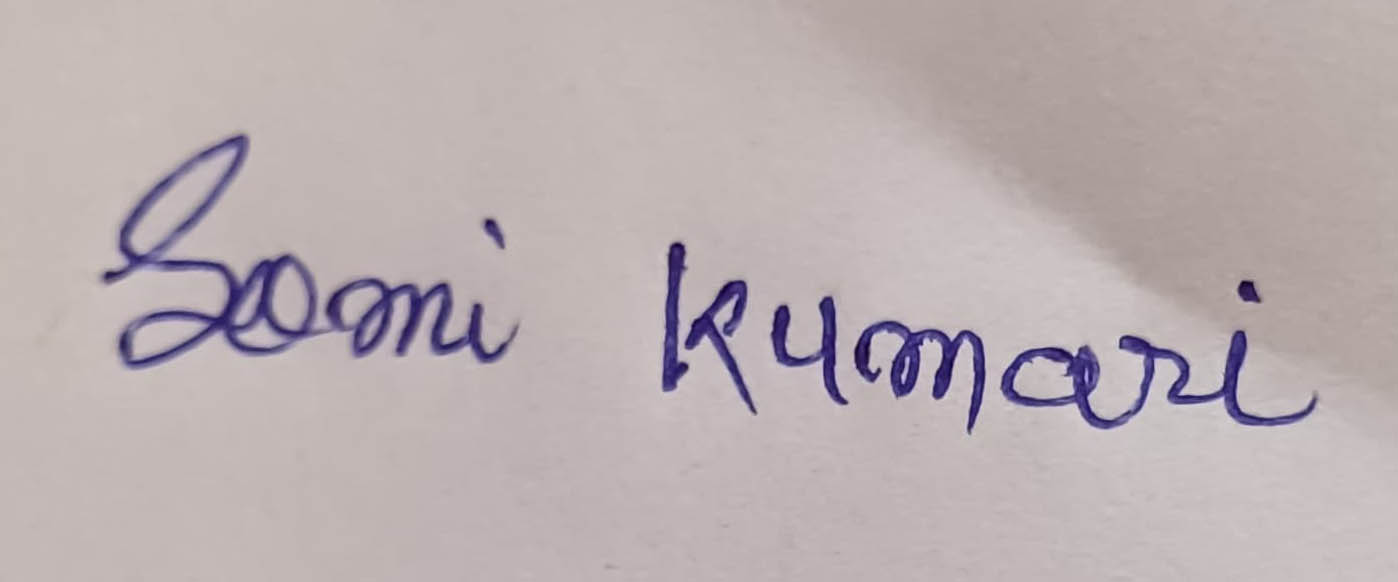 Somi Kumari